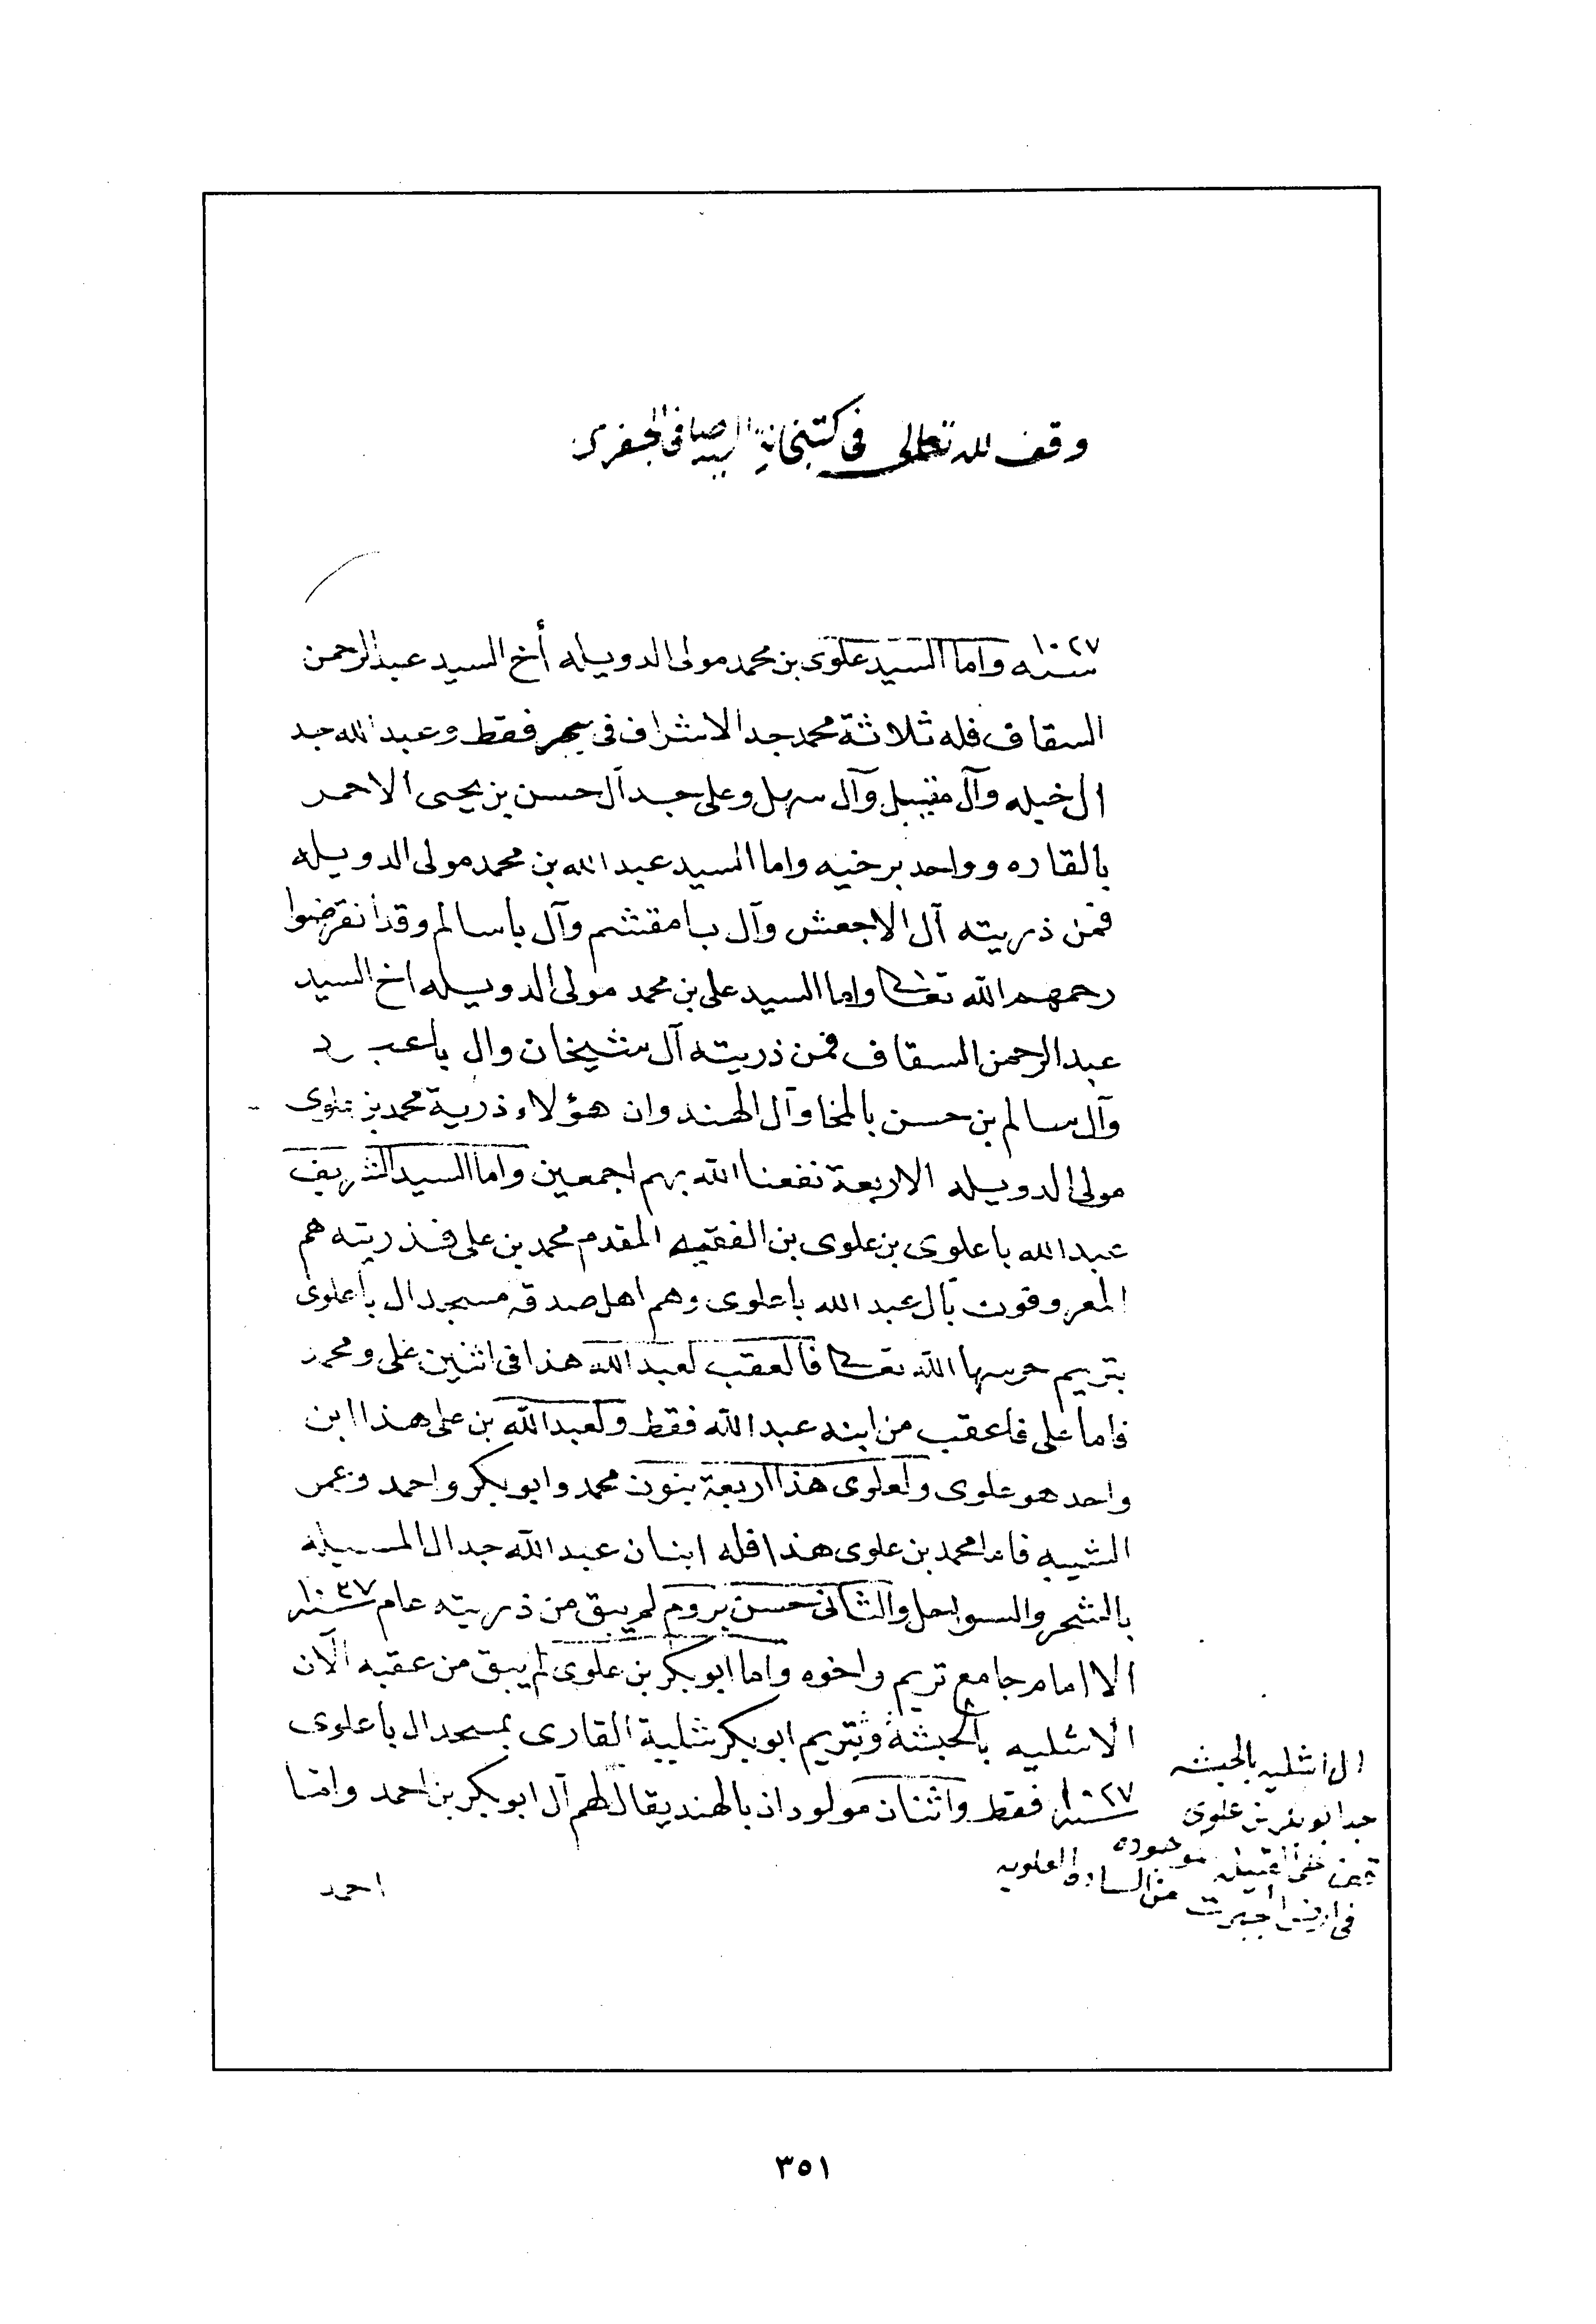 وقف لله تعالى في كتبخانة السيد صافي الجفري
سنه ١٠٢٧ واما السيد علوى بن محمد مولى الدويله أخ السيد عبدالرحمن
السقاف فله ثلاثة محمد جد الاشراف فى فقط وعبد الله جد
ال خيله وآل مقيبل وآل سهل وعلى جد آل حسن بن يحيى الاحمر
بالقاره وواحد برخيه واما السيد عبد الله بن محمد مولى الدويله
فمن ذريته آل الاجعش وآل بامقشم وآل باسالم وقد انقرضوا
رحمهم الله تعالى واما السيد على بن محمد مولى الدويله اخ السيد
عبد الرحمن السقاف فمن ذريته آل شيخان وال باعبود
وآل سالم بن حسن بالمخا وآل الهندوان هؤلاء ذرية محمد بن علوى
مولى الدويله الاربعة نفعنا الله بهم اجمعين واما السيد الشريف
عبد الله باعلوى بن علوى بن الفقيه المقدم محمد بن على فذريته هم
المعروفون بآل عبد الله باعلوى وهم اهل صدقه مسجد ال باعلوى
بتريم حرسها الله تعالى فالعقب لعبد الله هذا فى اثنين على ومحمد
فاما على فاعقب من ابنه عبد الله فقط ولعبد الله بن على هذا ابن
واحد هو علوى ولعلوى هذا اربعة بنون محمد وابوبكر واحمد وعمر
الشيبه فاما محمد بن علوى هذا فله ابنان عبد الله جد ال المسيله
بالشحر والسواحل والثانى حسن بروم لم يبق من ذريته عام سنه ١٠٣٧
الا امام جامع تريم واخوه واما ابوبكر بن علوى لم يبق من عقبه الآن
الا شليه بالحبشة وبتريم ابوبكر شلية القارى بمسجد ال باعلوى
سنه ١٠٢٧ فقط واثنان مولودان بالهند يقال لهم آل ابوبكر بن احمد واما
احمد
ال شليه بالحبشه
جد ابوبكر بن علوى
القبيله موجوده
فى ارض اجبرت من الساده العلويه
٣٥١